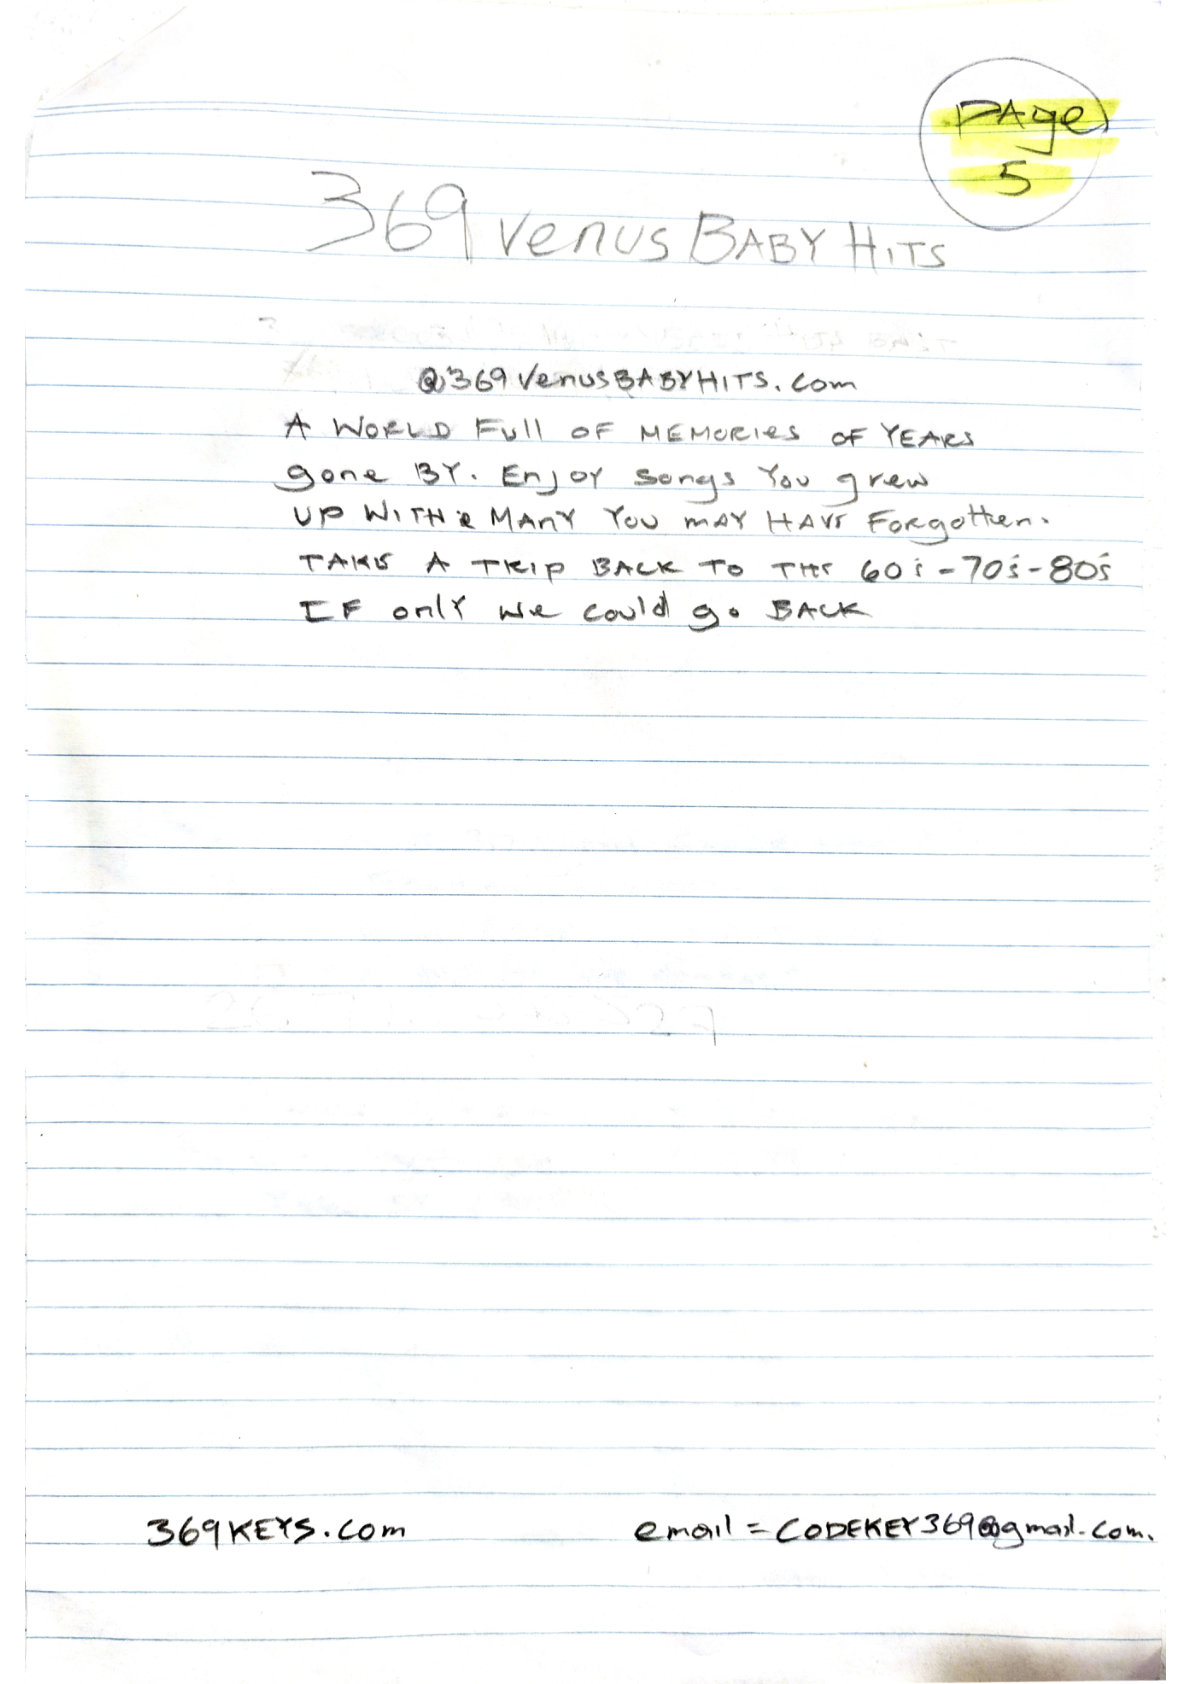 PAge
5
369 Venus BABY HITS
@369VenusBABYHITS.com
A WORLD Full OF MEMORIES OF YEARS
gone BY. Enjoy songs You grew
UP WITH & MANY YOU MAY HAVE Forgotten.
TAKE A TRIP BACK TO THE 60s-70s-80s
IF only we could go BACK
369KEYS.com
email = CODEKEY369@gmail.com.